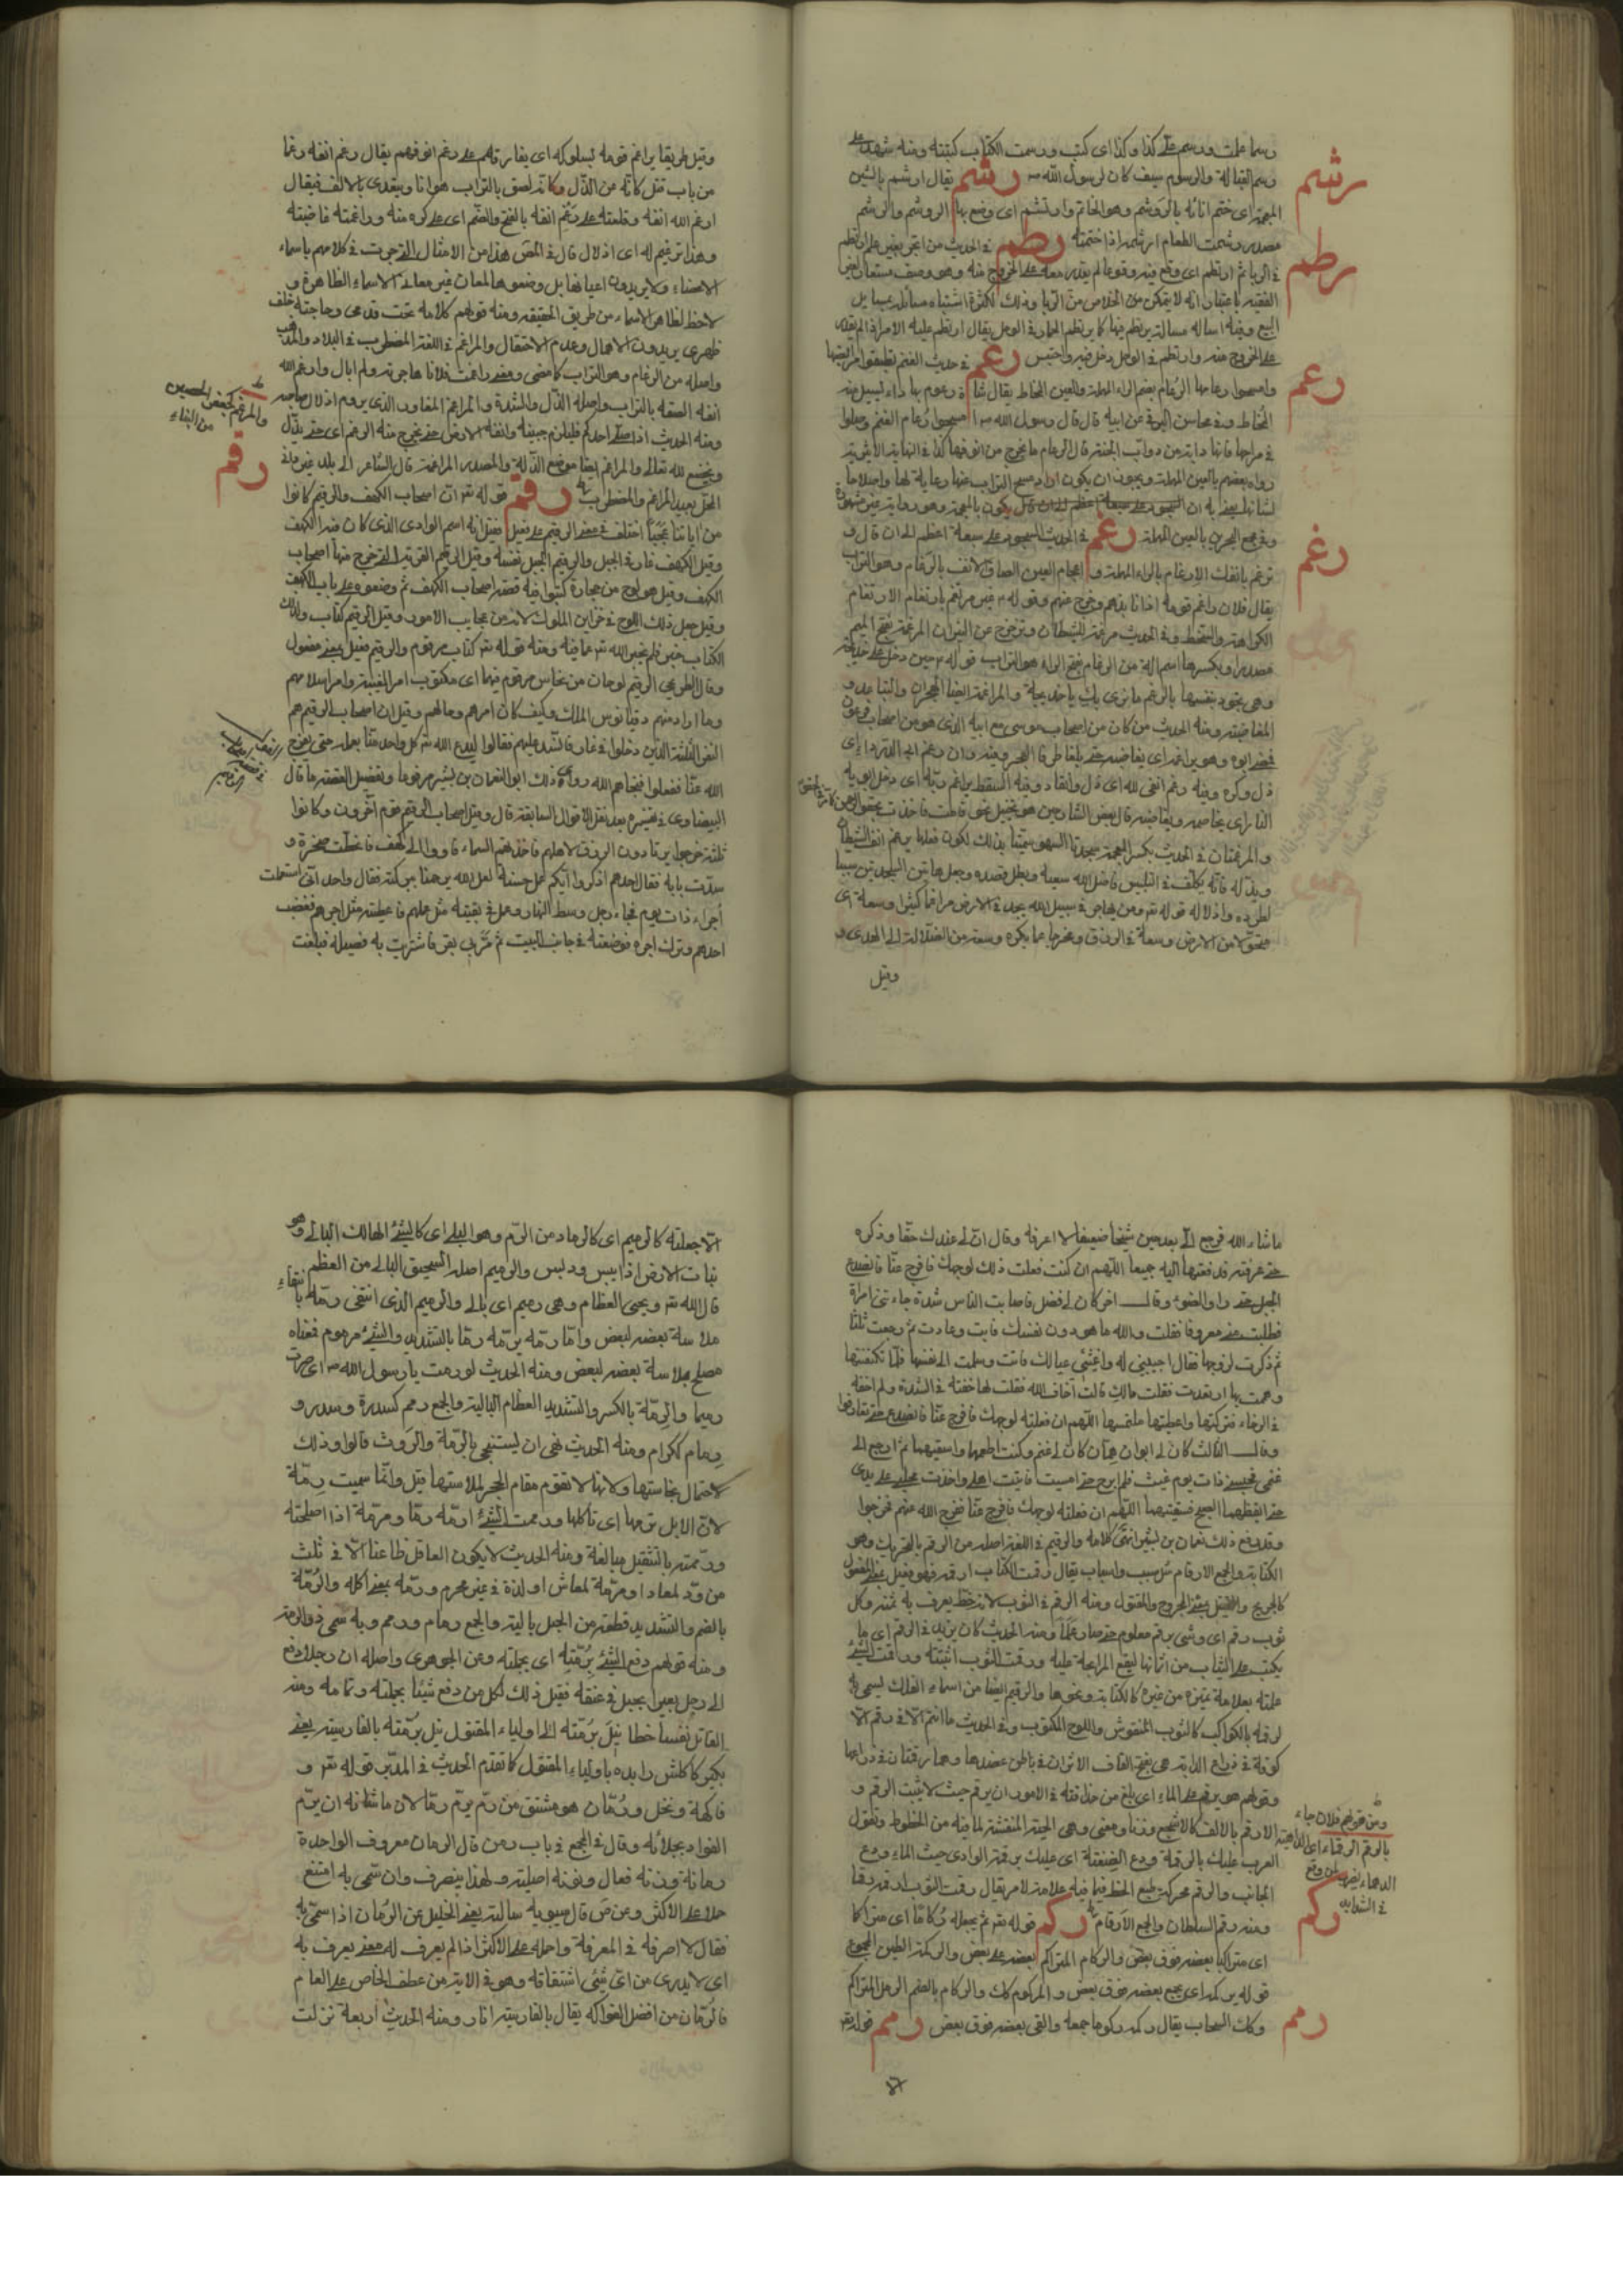 رسما علمت ورسم على كذا وكذا اى كتب ورسمت الكتاب كتبته ومنه شهد على
رسم القبالة والرسوم سيف كان لرسول الله ص رشم يقال ارشم بالشين
رشم
المعجمة اى ختم انائه بالروشم وهو الخاتم وارتشم اى وضع بها الروشم والرشم
مصدر رشمت الطعام ارشمه اذا ختمته رطم فى الحديث من اتجر بغير علم ارتطم
رطم
فى الربا ثم ارتطم اى وقع فيه وقوعا لم يقدر معه على الخروج منه وهو وصف مستعار لغير
الفقيه باعتبار انه لا يتمكن من الخلاص من الربا وذلك لكثرة اشتباه مسائله بمسايل
البيع وفيه اساله مسالة يرتطم فيها كما يرتطم الحمار فى الوحل يقال ارتطم عليه الامر اذا لم يقدر
على الخروج منه وارتطم فى الوحل دخل فيه واحتبس رعم فى حديث الغنم نظفوا مرابضها
رعم
وامسحوا رعامها الرعام بضم الراء المهملة والعين المخاط يقال شاة رعوم بها داء يسيل منه
المخاط وفى محاسن البرقى عن ابيه قال قال رسول الله ص امسحوا رعام الغنم وصلوا
فى مراحها فانها دابة من دواب الجنة قال الرعام ما يخرج من انوفها كذا فى النهاية الا انه
رواه بعضهم بالغين المعجمة ويجوز ان يكون اراد مسح التراب عنها رعاية لها واصلاحا
وفى مجمع البحرين بالعين المهملة رغم فى الحديث السجود على سبعة اعظم الى ان قال و
رغم
ترغم بانفك الارغام بالراء المهملة واعجام الغين الصاق الانف بالرغام وهو التراب
يقال فلان راغم قومه اذا نابذهم وخرج عنهم وقوله ع غير مرتغم بارتغام الارتغام
الكراهة والسخط وفى الحديث مرغمة للشيطان وتزحزح عن النيران المرغمة بفتح الميم
مصدر او بكسرها اسم الة من الرغام بفتح الراء هو التراب قوله ع حين دخل على خديجة
وهى تجود بنفسها بالرغم ما نرى بك يا خديجة والمراغمة ايضا الهجران والتباعد و
المغاضبة ومنه الحديث من كان من اصحاب موسى مع ابيه الذى هو من اصحاب فرعون
ذل وكره وفيه رغم انفى لله اى ذل وانقاد وفيه السقط يراغم ربه اى دخل ابويه
والمرغمتان فى الحديث بكسر المعجمة سجدتا السهو سميتا بذلك لكون فعلهما يرغم انف الشيطان
ويذله فانه يكلف فى التلبيس فاضل الله سعيه وبطل قصده وجعل هاتين السجدتين سببا
لطرده واذلاله قوله تع ومن يهاجر فى سبيل الله يجد فى الارض مراغما كثيرا وسعة اى
متحولا من الارض وسعة فى الرزق ومخرجا عما يكره وسعة من الضلالة الى الهدى و
وقيل
وقيل طريقا يراغم قومه بسلوكه اى يفارقهم على رغم انوفهم يقال رغم انفه رغما
من باب قتل كانه عن الذل وكانه لصق بالتراب هوانا ويتعدى بالالف فيقال
ارغم الله انفه وفعلته على رغم انفه بالفتح والضم اى على كره منه وراغمته غاضبته
وهذا ترغيم له اى اذلال قال فى المص هذا من الامثال التى جرت فى كلامهم باسماء
الاعضاء ولا يريدون اعيانها بل وضعوها لمعان غير معانى الاسماء الظاهرة و
لاحظ لظاهر الاسماء من طريق الحقيقة ومنه قولهم كلامه تحت قدمى وحاجته خلف
ظهرى يريدون الاهمال وعدم الاحتفال والمراغم فى اللغة المضطرب فى البلاد والمذهب
واصله من الرغام وهو التراب كما مضى ومعنى راغمت فلانا هاجرته ولم ابال وارغم الله
انفه الصقه بالتراب واصله الذل والشدة والمراغم المعاود الذى يروم اذلال صاحبه
ومنه الحديث اذا صلى احدكم فليلزم جبهته وانفه الارض حتى يخرج منه الرغم اى حتى يذل
ويخضع لله تعالى والمراغم ايضا موضع الذلة والمصدر المراغمة قال الشاعر الى بلد غير دانى
المحل بعيد المراغم والمضطرب رقم قوله تع ان اصحاب الكهف والرقيم كانوا
رقم
من اياتنا عجبا اختلف فى معنى الرقيم على فيل فقيل انه اسم الوادى الذى كان فيه الكهف
وقيل الكهف غار فى الجبل والرقيم الجبل نفسه وقيل الرقيم القرية التى خرج منها اصحاب
الكهف وقيل هو لوح من حجارة كتبوا فيه قصة اصحاب الكهف ثم وضعوه على باب الكهف
وقيل جعل ذلك اللوح فى خزاين الملوك لانه من عجايب الامور وقيل الرقيم كتاب ولذلك
الكتاب خبر فلم يخبر الله تع عما فيه ومنه قوله تع كتاب مرقوم والرقيم فعيل بمعنى مفعول
وقال الطريحى الرقيم لوحان من نحاس مرقوم فيهما اى مكتوب امر الفتية وامر اسلامهم
وما اراد منهم دقيانوس الملك وكيف كان امرهم وحالهم وقيل ان اصحاب الرقيم هم
النفر الثلثة الذين دخلوا فى غار فانسد عليهم فقالوا ليدع الله تع كل واحد منا بعمله حتى يفرج
الله عنا ففعلوا فنجاهم الله روى ذلك ابو النعمان بن بشير مرفوعا وتفصيل القصة ما قال
البيضاوى فى تفسيره بعد نقل الاقوال السابقة قال وقيل اصحاب الرقيم قوم آخرون وكانوا
ثلثة خرجوا يرتادون الرزق لاهلهم فاخذهم السماء فاووا الى كهف فانحطت صخرة و
سدت بابه فقال احدهم اذكروا ايكم عمل حسنة لعل الله يرحمنا ببركته فقال واحد انى استعملت
اجراء ذات يوم فجاء رجل وسط النهار وعمل فى بقيته مثل عملهم فاعطيته مثل اجرهم فغضب
احدهم وترك اجره فوضعته فى جانب البيت ثم مر بى بقر فاشتريت به فصيلة فبلغت
ما شاء الله فرجع الى بعد حين شيخا ضعيفا لا اعرفه وقال ان لى عندك حقا وذكره
حتى عرفته فدفعتها اليه جميعا اللهم ان كنت فعلت ذلك لوجهك فافرج عنا فانصدع
الجبل حتى راوا الضوء وقال اخر كان لى فضل فاصابت الناس شدة جاءتنى امراة
فطلبت منى معروفا فقلت والله ما هو دون نفسك فابت وعادت ثم رجعت ثلثا
ثم ذكرت لزوجها فقال اجيبى له واغيثى عيالك فاتت وسلمت الى نفسها فلما تكشفتها
وهممت بها ارتعدت فقلت مالك قالت اخاف الله فقلت لها خفته فى الشدة ولم اخفه
فى الرخاء فتركتها واعطيتها ملتمسها اللهم ان فعلته لوجهك فافرج عنا فانصدع حتى تعارفوا
وقال الثالث كان لى ابوان همان كان لى غنم وكنت اطعمهما واسقيهما ثم ارجع الى
غنمى فحبسنى ذات يوم غيث فلم ابرح حتى امسيت فاتيت اهلى واخذت محلبى على يدى
حتى ايقظهما الصبح فسقيتهما اللهم ان فعلته لوجهك فافرج عنا ففرج الله عنهم فخرجوا
وقد رفع ذلك نعمان بن بشير انتهى كلامه والرقيم فى اللغة اصله من الرقم بالتحريك وهو
الكتابة والجمع الارقام مثل سبب واسباب يقال رقمت الكتاب ارقمه فهو فعيل بمعنى المفعول
كالجريح والقتيل بمعنى المجروح والمقتول ومنه الرقم فى الثوب لانه خط يعرف به ثمنه وكل
ثوب رقم اى وشى برقم معلوم حتى صار علما ومنه الحديث كان يزيد فى الرقم اى ما
يكتب على الثياب من اثمانها ليقع المرابحة عليه ورقمت الثوب اثبته ورقمت الشىء
علمته بعلامة تميزه من غيره كالكتابة ونحوها والرقيم ايضا من اسماء الفلك ليسمى به
لرقمه بالكواكب كالثوب المنقوش واللوح المكتوب وفى الحديث ما انتم الا فى رقم الا
كرقمة فى ذراع الدابة هى بفتح القاف الاثران فى باطن عضدها وهما رقمتان فى ذراعها
وقولهم هو يرقم على الماء اى بلغ من حذاقته فى الامور ان يرقم حيث لا يثبت الرقم و
الارقم بالالف كالاشجع وزنا ومعنى وهى الحية المنقشة لما فيه من الخطوط وتقول
العرب عليك بالرقمة ودع الضفقة اى عليك برقمة الوادى حيث الماء ودع
الجانب والرقم محركة طبع الخط فيما فيه علامة لامر يقال رقمت الثوب ارقمه رقما
ومنه رقم السلطان والجمع الارقام ركم قوله تع ثم يجعله ركاما اى متراكما
ركم
اى متراكبا بعضه فوق بعض والركام المتراكم بعضه على بعض والركمة الطين المجموع
قوله يركمه اى يجمع بعضه فوق بعض والمركوم كك والركام بالضم الرمل المتراكم
وكك السحاب يقال ركمه ركوما جمعه والقى بعضه فوق بعض رمم قوله تع
رمم
الا جعلته كالرميم اى كالرماد من الرم وهو البلى اى كالشىء الهالك البالى وهو
نبات الارض اذا يبس ودبس والرميم اصله السحيق البالى من العظم
قال الله تع ويحيى العظام وهى رميم اى بالى والرميم الذى انتفى رمه با
ملاسة بعضه لبعض واما رمه يرمه رما بالتشديد والشىء مرموم فمعناه
مصلح بملاسة بعضه لبعض ومنه الحديث لو رمت يا رسول الله ص اى صرت
رميما والرمة بالكسر والتشديد العظام البالية والجمع رمم كسدرة وسدر و
رمام ككرام ومنه الحديث نهى ان يستنجى بالرمة والروث قالوا وذلك
لاحتمال نجاستها ولانها لا تقوم مقام الحجر لملاستها قيل وانما سميت رمة
لان الابل ترمها اى تاكلها ورممت الشىء ارمه رما ومرمة اذا اصلحته
ورممته بالتثقيل مبالغة ومنه الحديث لا يكون العاقل ظاعنا الا فى ثلث
من تزود لمعاد او مرمة لمعاش او لذة فى غير محرم ورمه بمعنى اكله والرمة
بالضم والتشديد قطعة من الحبل بالية والجمع رمام ورمم وبه سمى ذو الرمة
ومنه قولهم دفع الشىء برمته اى بجملته وعن الجوهرى واصله ان رجلا دفع
الى رجل بعيرا بحبل فى عنقه فقيل ذلك لكل من دفع شيئا بجملته وتمامه ومنه
القاتل نفسا خطا نيل برمته الى اولياء المقتول نيل برمته بالفارسية يعنى
كما تقدم الحديث فى المدبر قوله تع و
فاكهة ونخل ورمان هو مشتق من رم يرم رما لان ما شانه ان يرم
الفواد بجلائه وقال فى المجمع فى باب رمن قال الرمان معروف الواحدة
رمانة وزنه فعال ونونه اصلية ولهذا ينصرف وان سمى به امتنع
حملا على الاكثر وعن ص قال سيبويه سالته يعنى الخليل عن الرمان اذا سمى به
فقال لا اصرفه فى المعرفة واحمله على الاكثر اذا لم يعرف له معنى يعرف به
اى لا يدرى من اى شىء اشتقاقه وهو فى الاية من عطف الخاص على العام
فالرمان من افضل الفواكه يقال بالفارسية انار ومنه الحديث اربعة نزلت